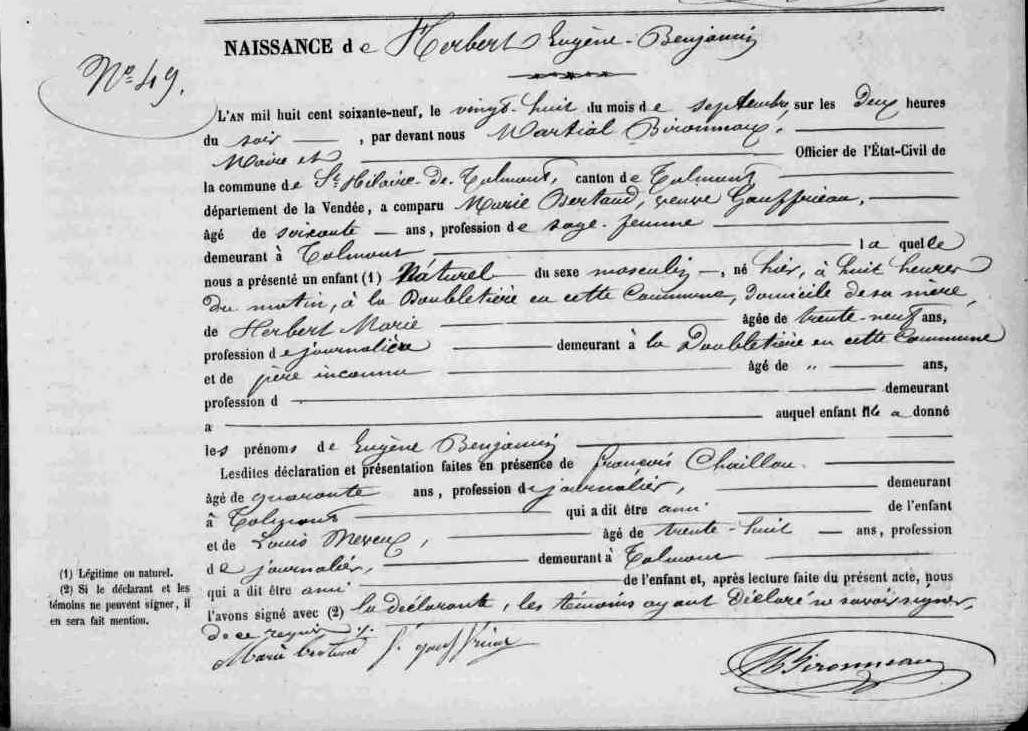 NAISSANCE de Herbert Eugène-Benjamin
N° 49.
L'AN mil huit cent soixante-neuf, le vingt-huit du mois de septembre, sur les Deux heures
du soir, par devant nous Martial Bironneau,
Maire et Officier de l'État-Civil de
la commune de St Hilaire-de-Talmont, canton de Talmont
département de la Vendée, a comparu Marie Bertaud, veuve Gauffrieau,
âgé de soixante ans, profession de sage-femme
demeurant à Talmont laquelle
nous a présenté un enfant (1) Naturel du sexe masculin, né hier, à huit heures
du matin, à la Doubletière en cette Commune, domicile de sa mère,
de Herbert Marie âgée de trente-neuf ans,
profession de journalière demeurant à la Doubletière en cette Commune
et de père inconnu âgé de " ans,
profession d demeurant
a auquel enfant elle a donné
les prénoms de Eugène Benjamin
Lesdites déclaration et présentation faites en présence de françois Chaillou
âgé de quarante ans, profession de journalier, demeurant
à Talmont qui a dit être ami de l'enfant
et de Louis âgé de trente-huit ans, profession
de journalier, demeurant à Talmont
qui a dit être ami de l'enfant et, après lecture faite du présent acte, nous
l'avons signé avec (2) la déclarante, les témoins ayant Déclaré ne savoir signer,
de ce requis ./.
(1) Légitime ou naturel.
(2) Si le déclarant et les
témoins ne peuvent signer, il
en sera fait mention.
Marie
Bironneau